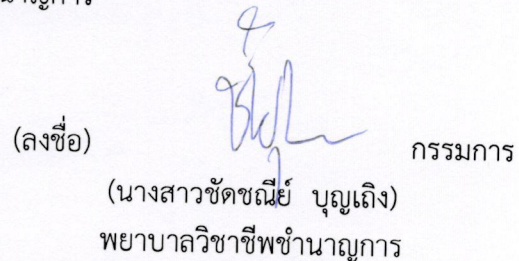 (ลงชื่อ) กรรมการ
(นางสาวชัดชณีย์ บุญเถิง)
พยาบาลวิชาชีพชำนาญการ